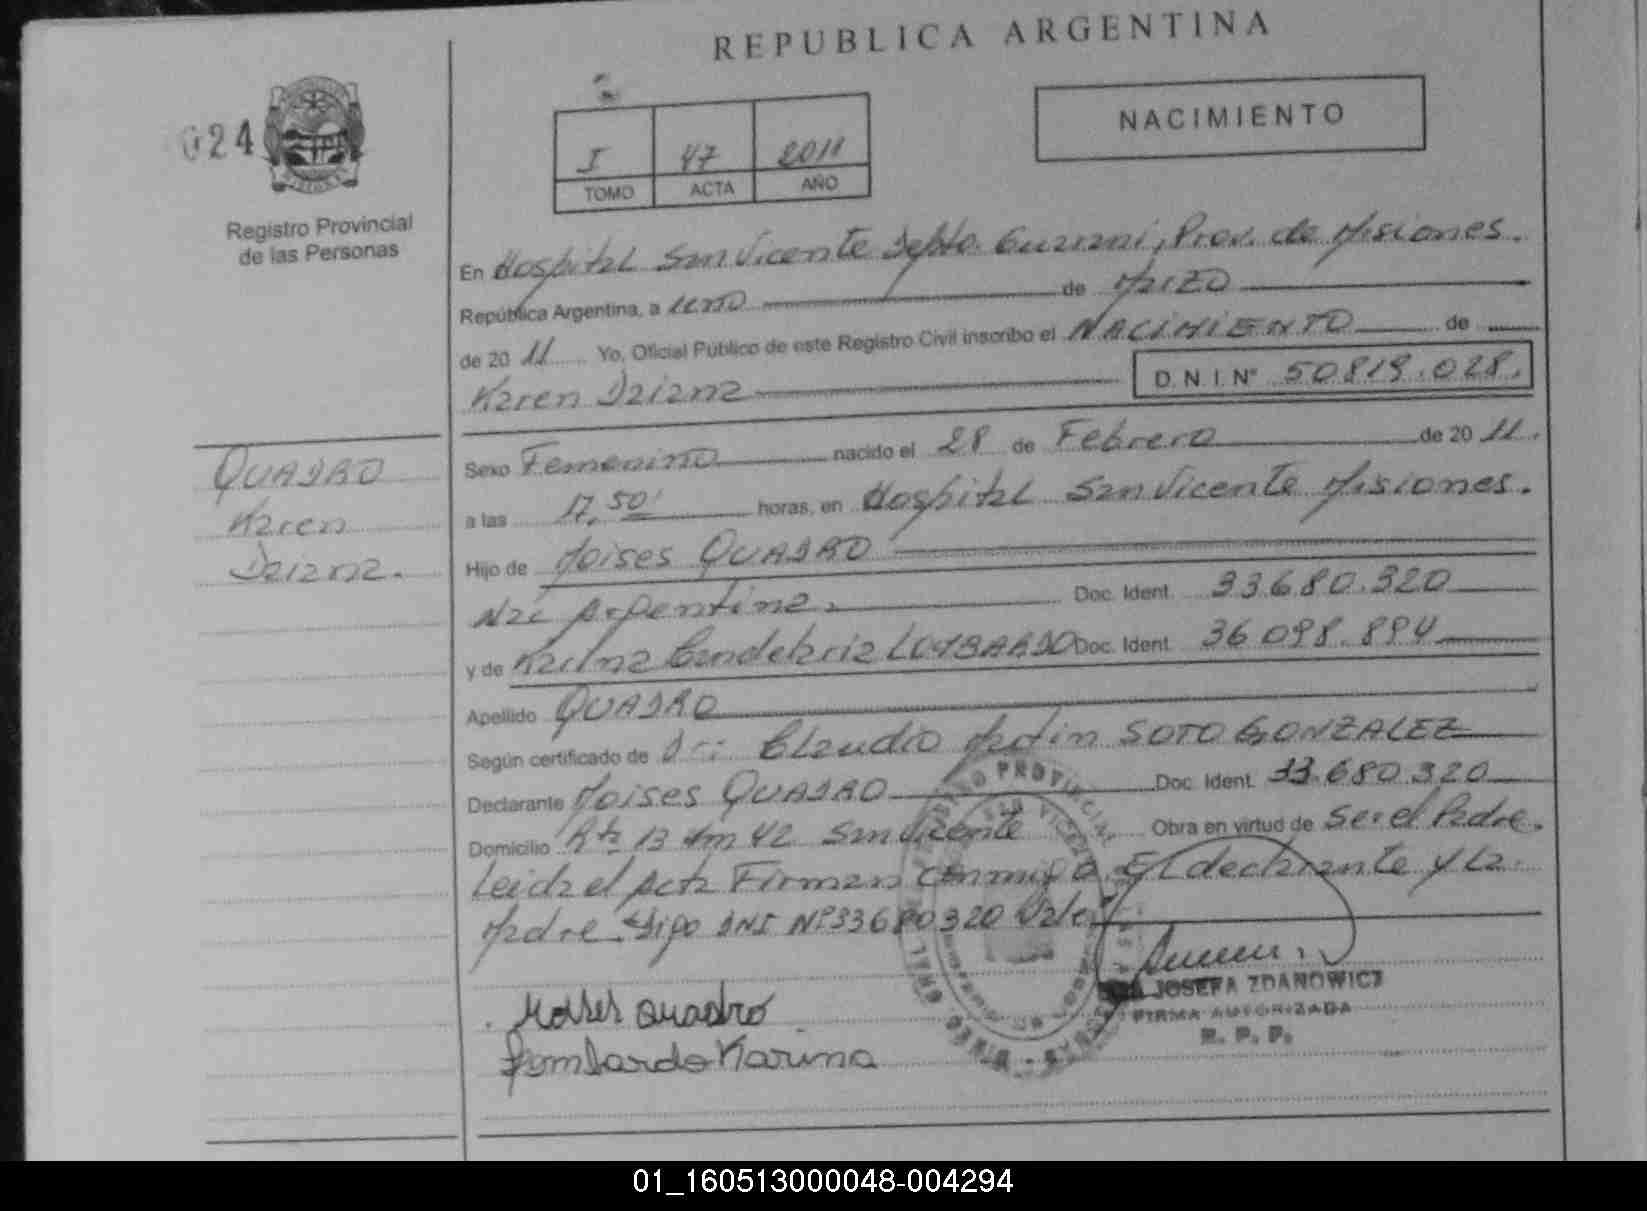 REPUBLICA ARGENTINA
024
NACIMIENTO
I 47 2011
TOMO ACTA AÑO
Registro Provincial
de las Personas
En Hospital San Vicente Depto. Guarani, Prov. de Misiones.
República Argentina, a uno de Marzo
de 2011 Yo, Oficial Público de este Registro Civil inscribo el NACIMIENTO de
Karen Daiana D.N.I. N° 50819.028.
QUADRO
Karen
Daiana.
Sexo Femenino nacido el 28 de Febrero de 2011.
a las 17,50' horas, en Hospital San Vicente Misiones.
Hijo de Moises QUADRO
Nac Argentina. Doc. Ident. 33.680.320
y de Karina Candelaria LOMBARDO Doc. Ident. 36.098.894
Apellido QUADRO
Según certificado de Dr: Claudio Martin SOTO GONZALEZ
Declarante Moises QUADRO Doc. Ident. 33.680.320
Domicilio Rta 13 Km 42 San Vicente Obra en virtud de Ser el Padre.
Leida el Acta Firman conmigo El declarante y La
Madre. Digo DNI Nº 33680320 Vale.
JOSEFA ZDANOWICZ
FIRMA AUTORIZADA
R. P. P.
Moises Quadro
Lombardo Karina
01_160513000048-004294